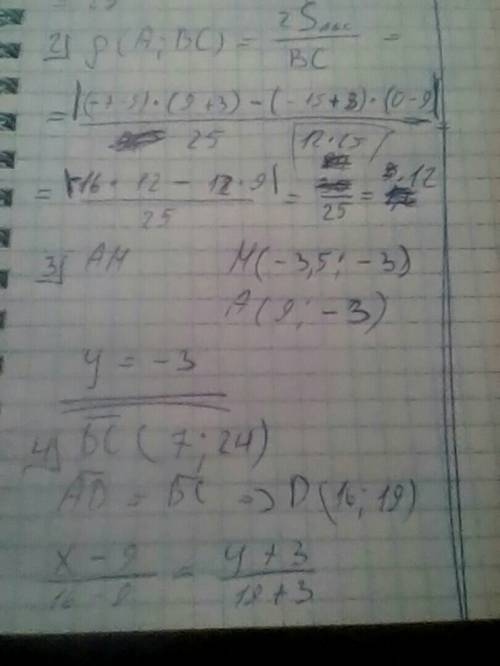 2) ρ(A; BC) = 2S / BC =
= |(-7-9)·(9+3) - (-15+3)·(0-9)| / 25
= |-16·12 - 12·9| / 25 = 12·25 / 25 = 12
3) AM M(-3,5; -3)
A(9; -3)
y = -3
4) BC (7; 24)
AD = BC => D(16; 19)
x - 9 / 16 - 9 = y + 3 / 18 + 3